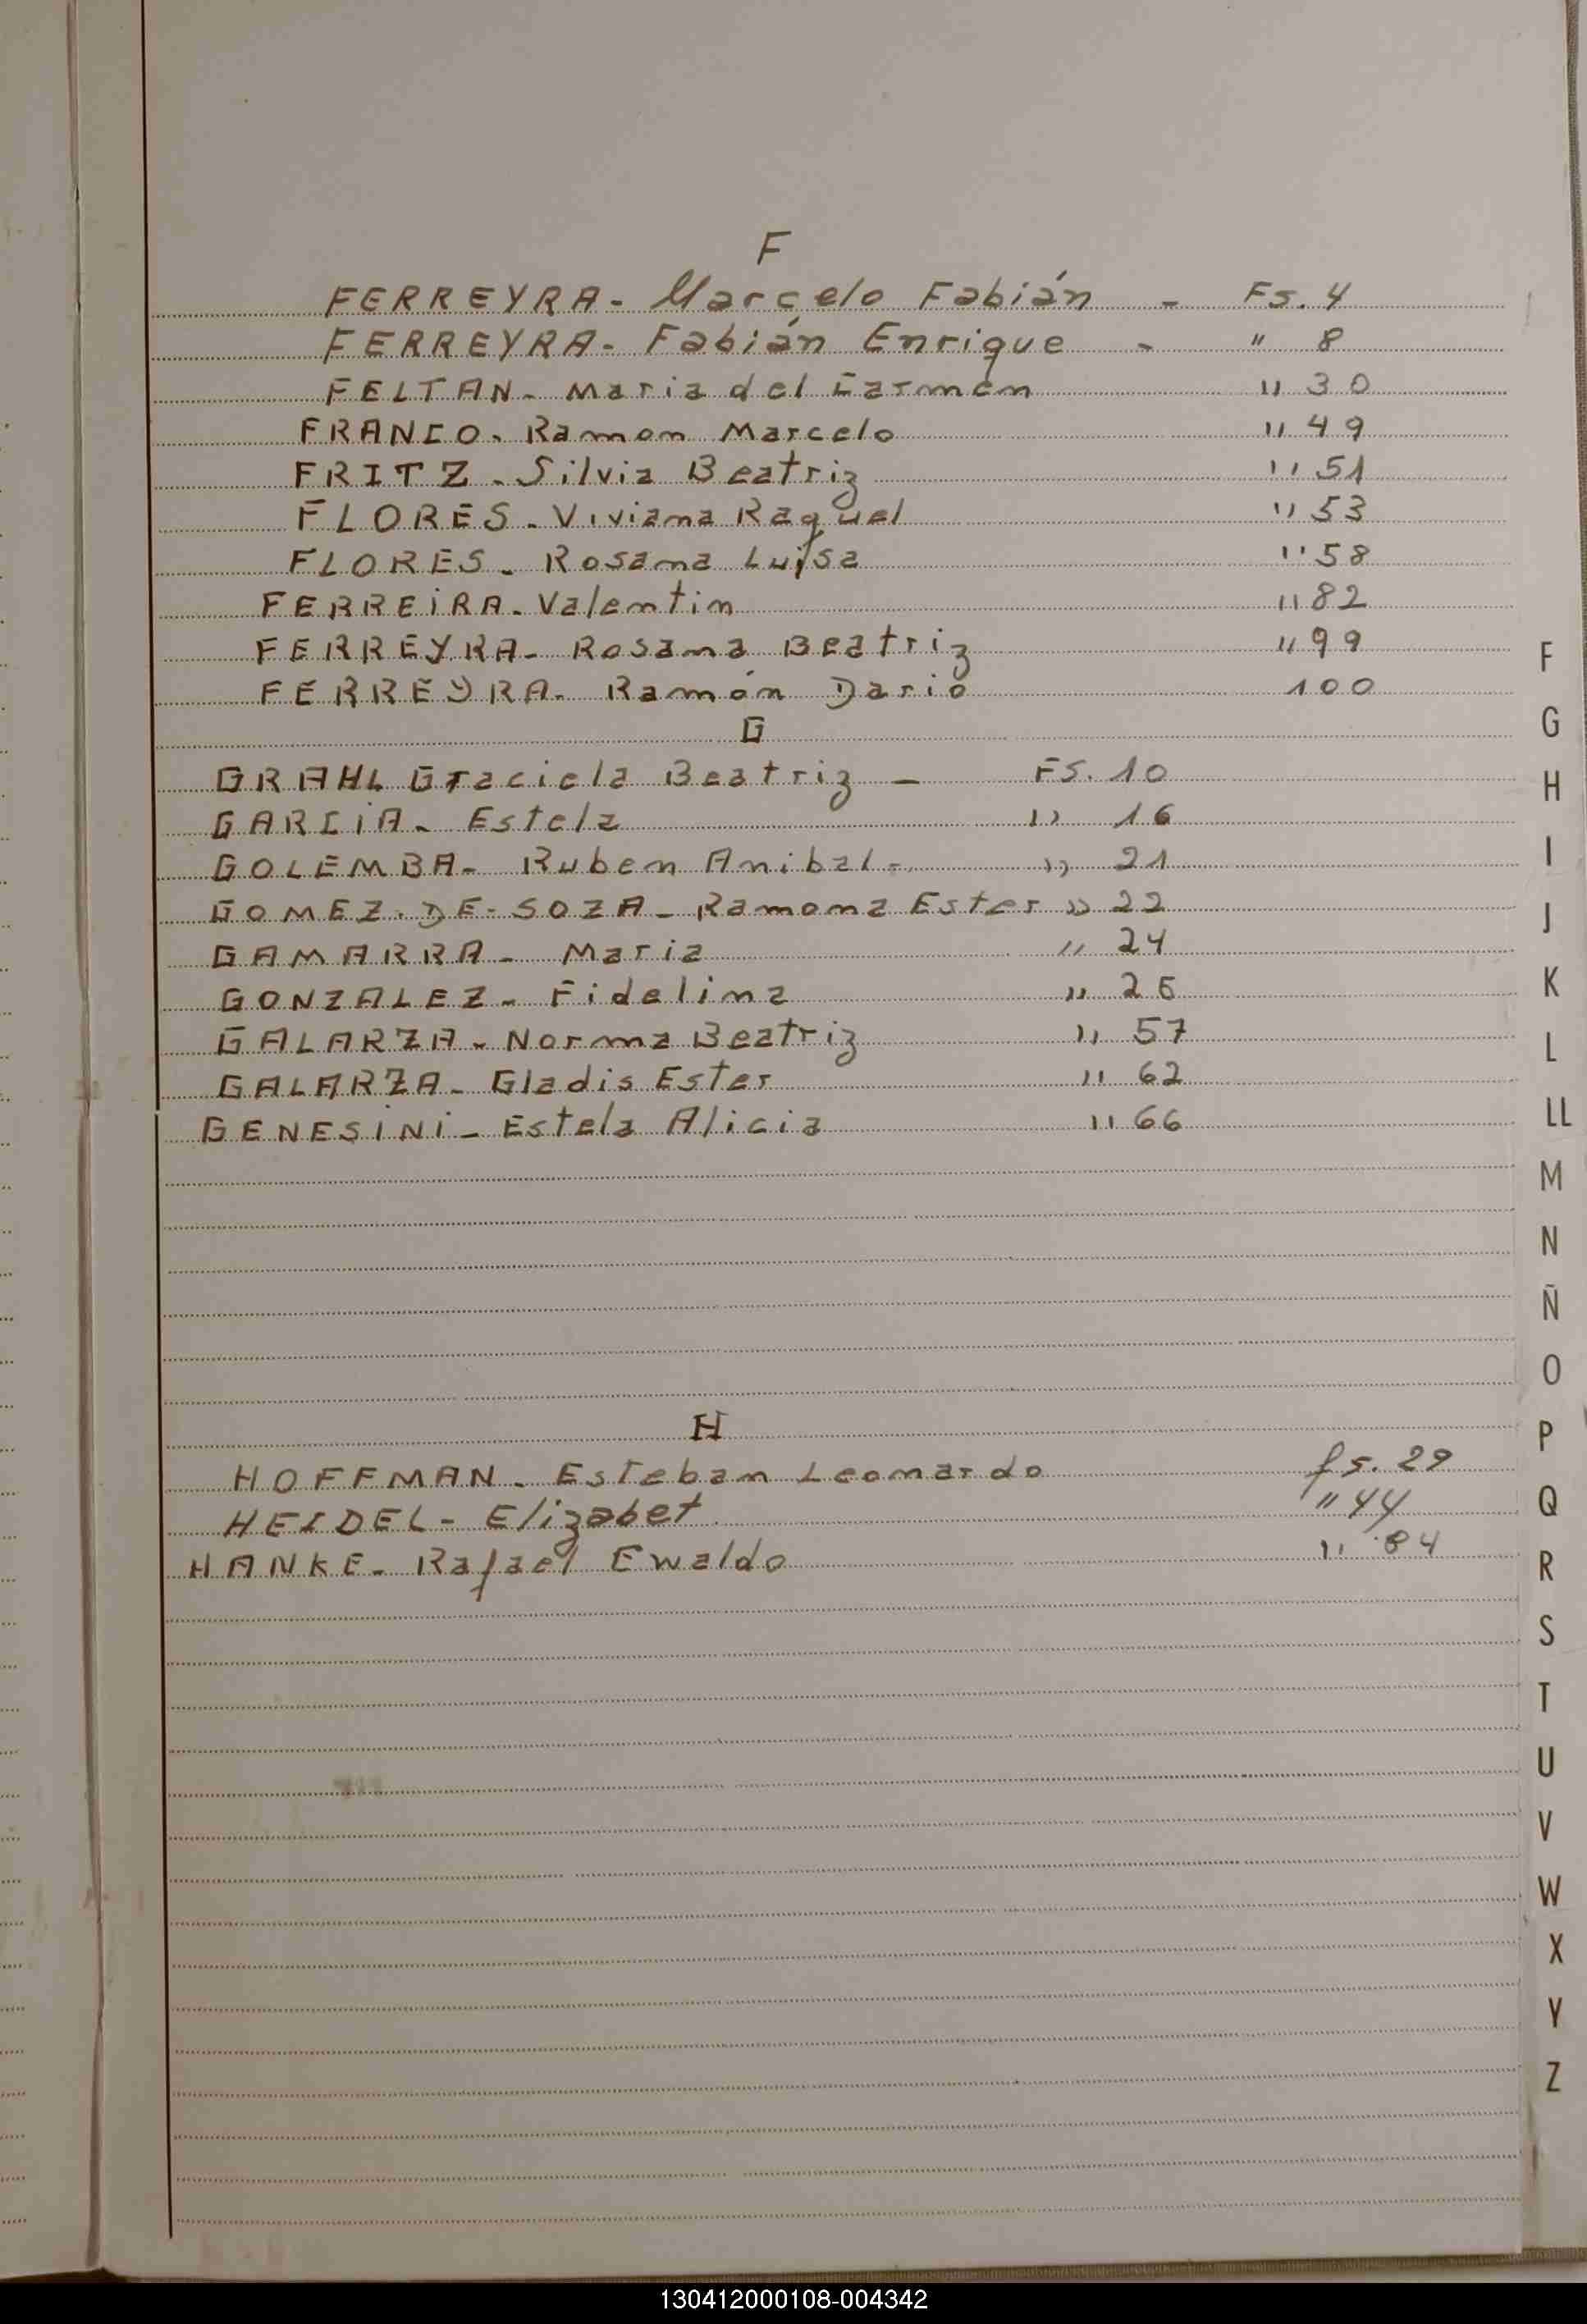 F
FERREYRA- Marcelo Fabián - Fs. 4
FERREYRA- Fabián Enrique - " 8
FELTAN- Maria del Carmen " 30
FRANCO- Ramon Marcelo " 49
FRITZ- Silvia Beatriz " 51
FLORES- Viviana Raquel " 53
FLORES- Rosana Luisa " 58
FERREiRA- Valentin " 82
FERREYRA- Rosana Beatriz " 99
FERREYRA- Ramón Dario 100
G
GRAHL Graciela Beatriz - FS. 10
GARCiA- Estela " 16
GOLEMBA- Ruben Anibal- " 21
GOMEZ-DE-SOZA- Ramona Ester " 22
GAMARRA- Maria " 24
GONZALEZ- Fidelina "
GALARZA- Norma Beatriz " 57
GALARZA- Gladis Ester " 62
GENESiNi- Estela Alicia " 66
H
HOFFMAN- Esteban Leonardo fs. 29
HEIDEL- Elizabet " 44
HANKE- Rafael Ewaldo " 84
F
G
H
I
J
K
L
LL
M
N
Ñ
O
P
Q
R
S
T
U
V
W
X
Y
Z
130412000108-004342